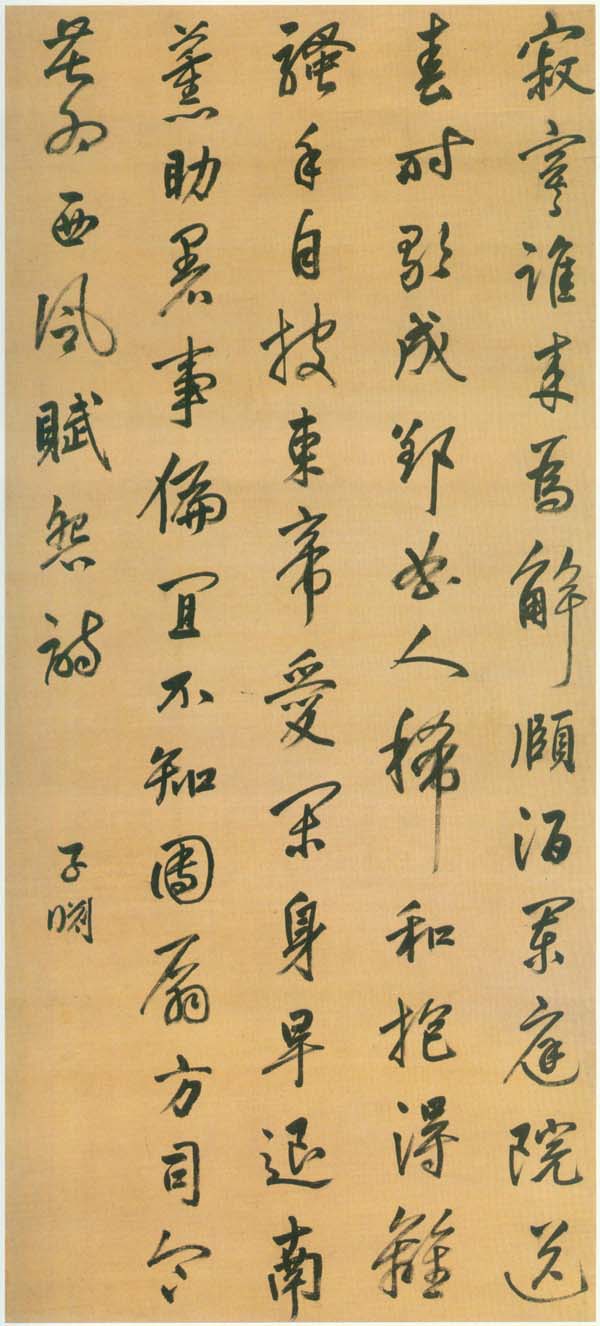 寂寥誰來為解頤酒闌庭院送
春時歌成郢曲人稀和抱得離
騷手自披東帝愛閑身早退南
薰助暑事偏宜不知團扇方司令
苦為西風賦怨詩
子